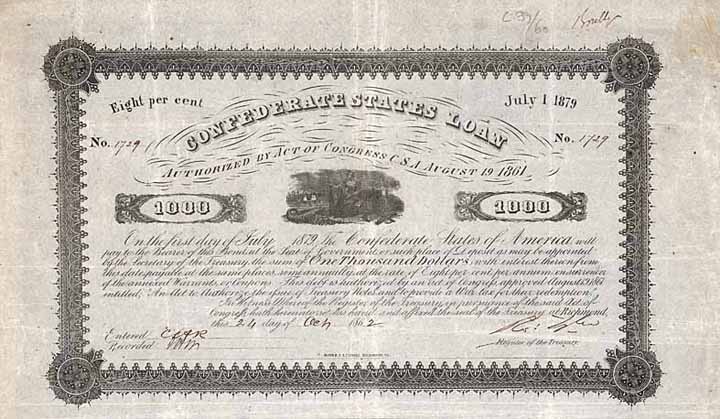 Eight per cent
July 1 1879
CONFEDERATE STATES LOAN
No. 1729
No. 1729
AUTHORIZED BY ACT OF CONGRESS C.S.A AUGUST 19 1861
1000
1000
On the first day of July 1879, The Confederate States of America will
pay to the Bearer of this Bond, at the Seat of Government, or such place of Deposit as may be appointed
by the Secretary of the Treasury, the sum of One Thousand Dollars, with interest thereon from
this date payable at the same places, semi annually, at the rate of Eight per cent per annum, on surrender
of the annexed Warrants, or Coupons. This debt is authorized by an Act of Congress approved August 19, 1861
entitled, An Act to Authorize the issue of Treasury Notes, and to provide a War tax for their redemption.
In Witness Whereof the Register of the Treasury, in pursuance of the said Act of
Congress, hath hereunto set his hand and affixed the seal of the Treasury at Richmond,
this 24 day of Oct 1862
Entered
Recorded
Register of the Treasury